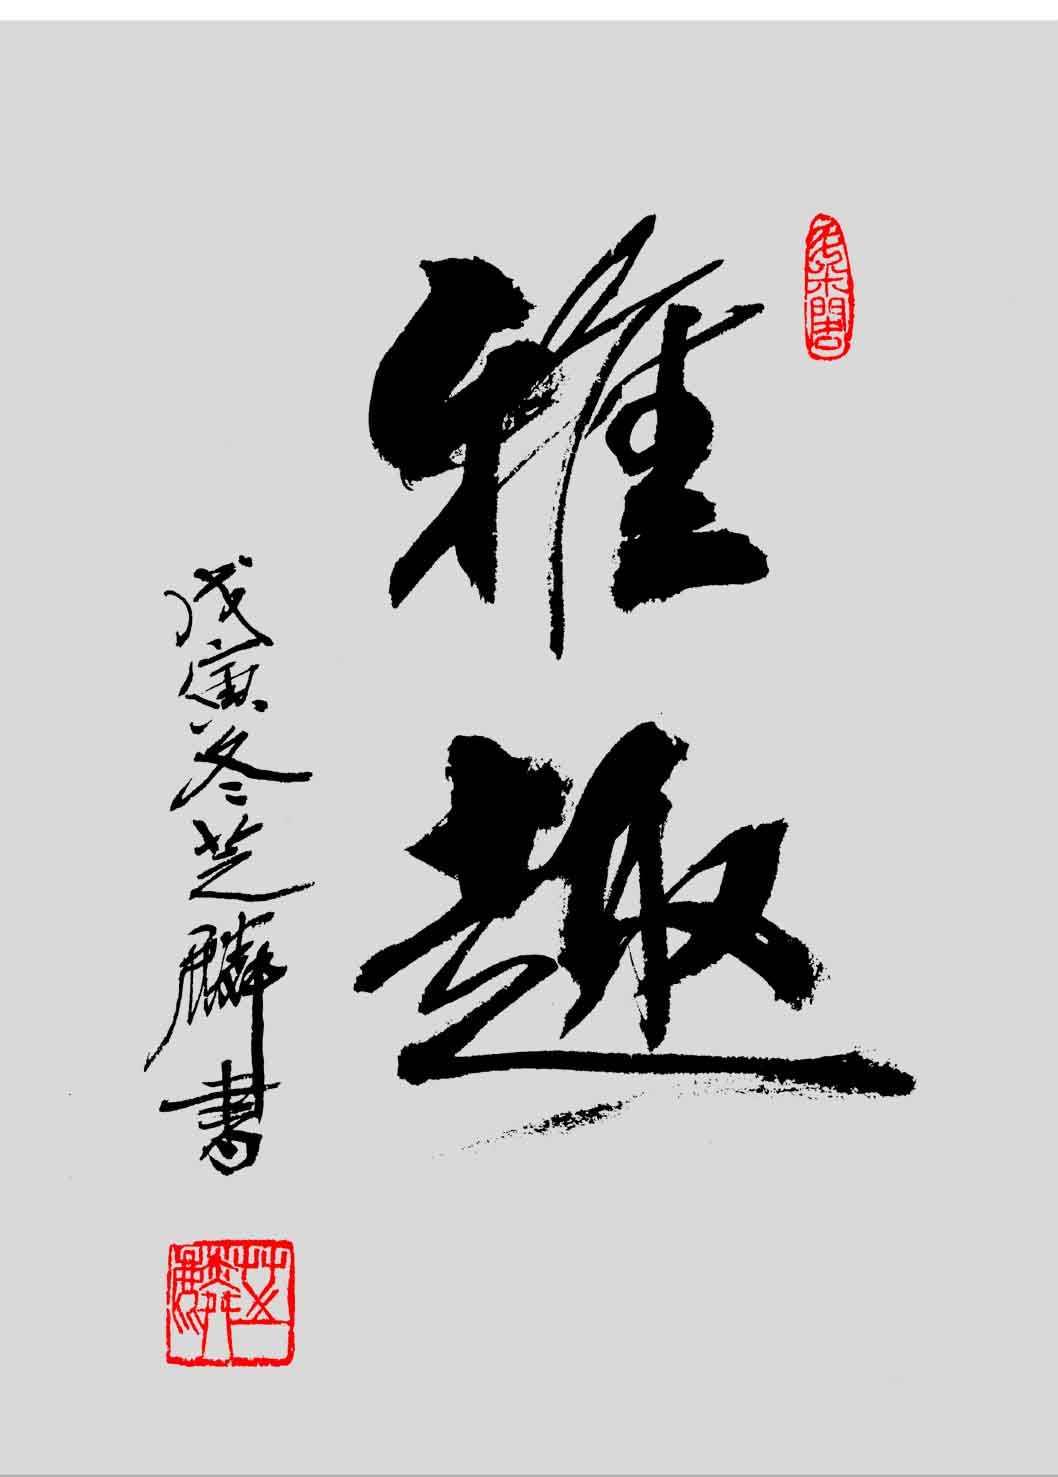 雅趣
戊寅冬芝麟書
芝麟